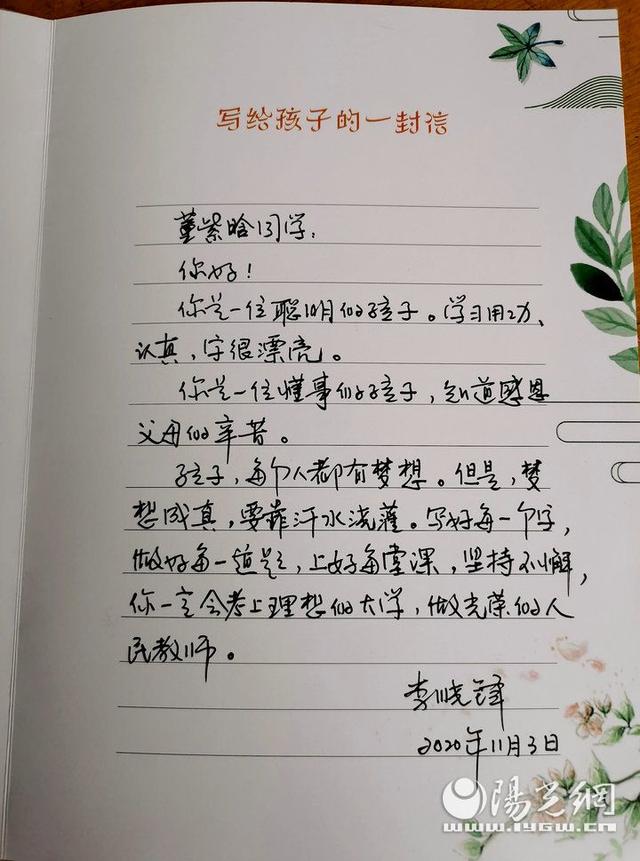 写给孩子的一封信
董紫晗同学：
你好！
你是一位聪明的孩子。学习用功、
认真，字很漂亮。
你是一位懂事的好孩子，知道感恩
父母的辛苦。
孩子，每个人都有梦想。但是，梦
想成真，要靠汗水浇灌。写好每一个字，
做好每一道题，上好每堂课，坚持不懈，
你一定会考上理想的大学，做光荣的人
民教师。
李晓锋
2020年11月3日
陽光網
www.iygw.cn